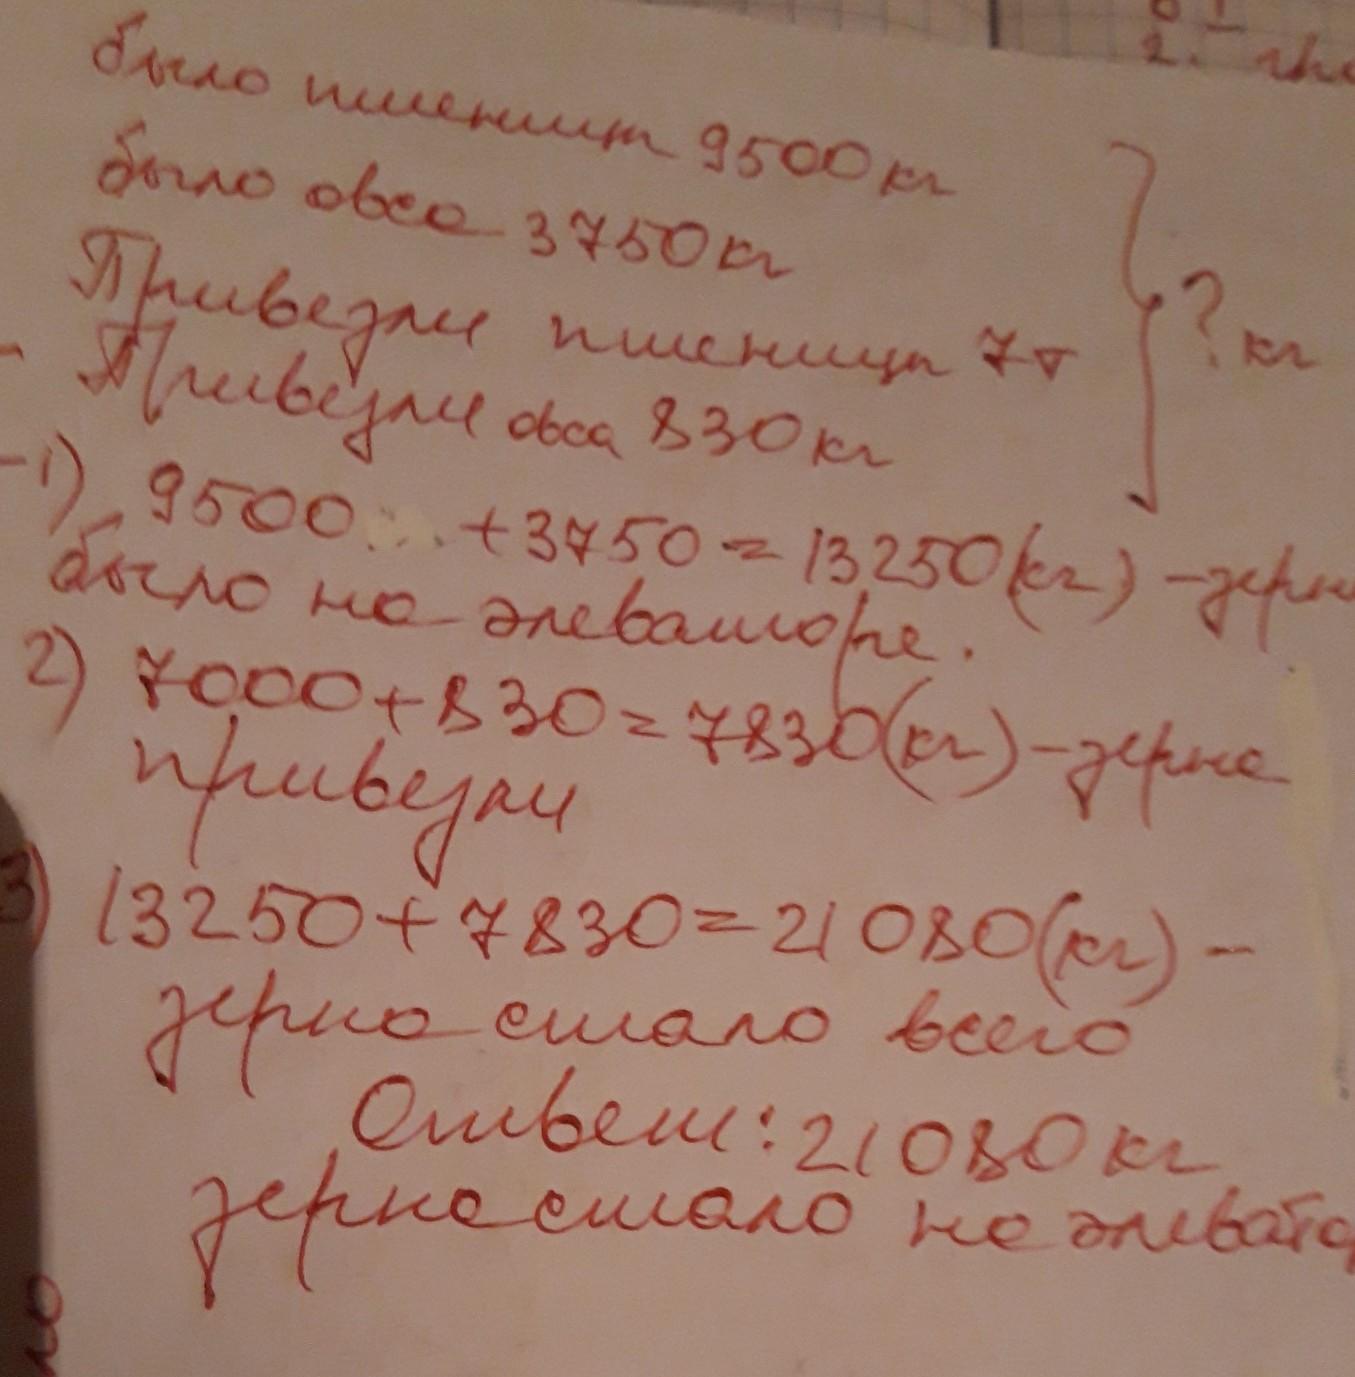 было пшениц 9500 кг
было овса 3750 кг
Привезли пшеницы 7 т
Привезли овса 830 кг
} ? кг
1) 9500 + 3750 = 13250 (кг) - зерна
было на элеваторе.
2) 7000 + 830 = 7830 (кг) - зерна
привезли
3) 13250 + 7830 = 21080 (кг) -
зерна стало всего
Ответ: 21080 кг
зерна стало на элевато